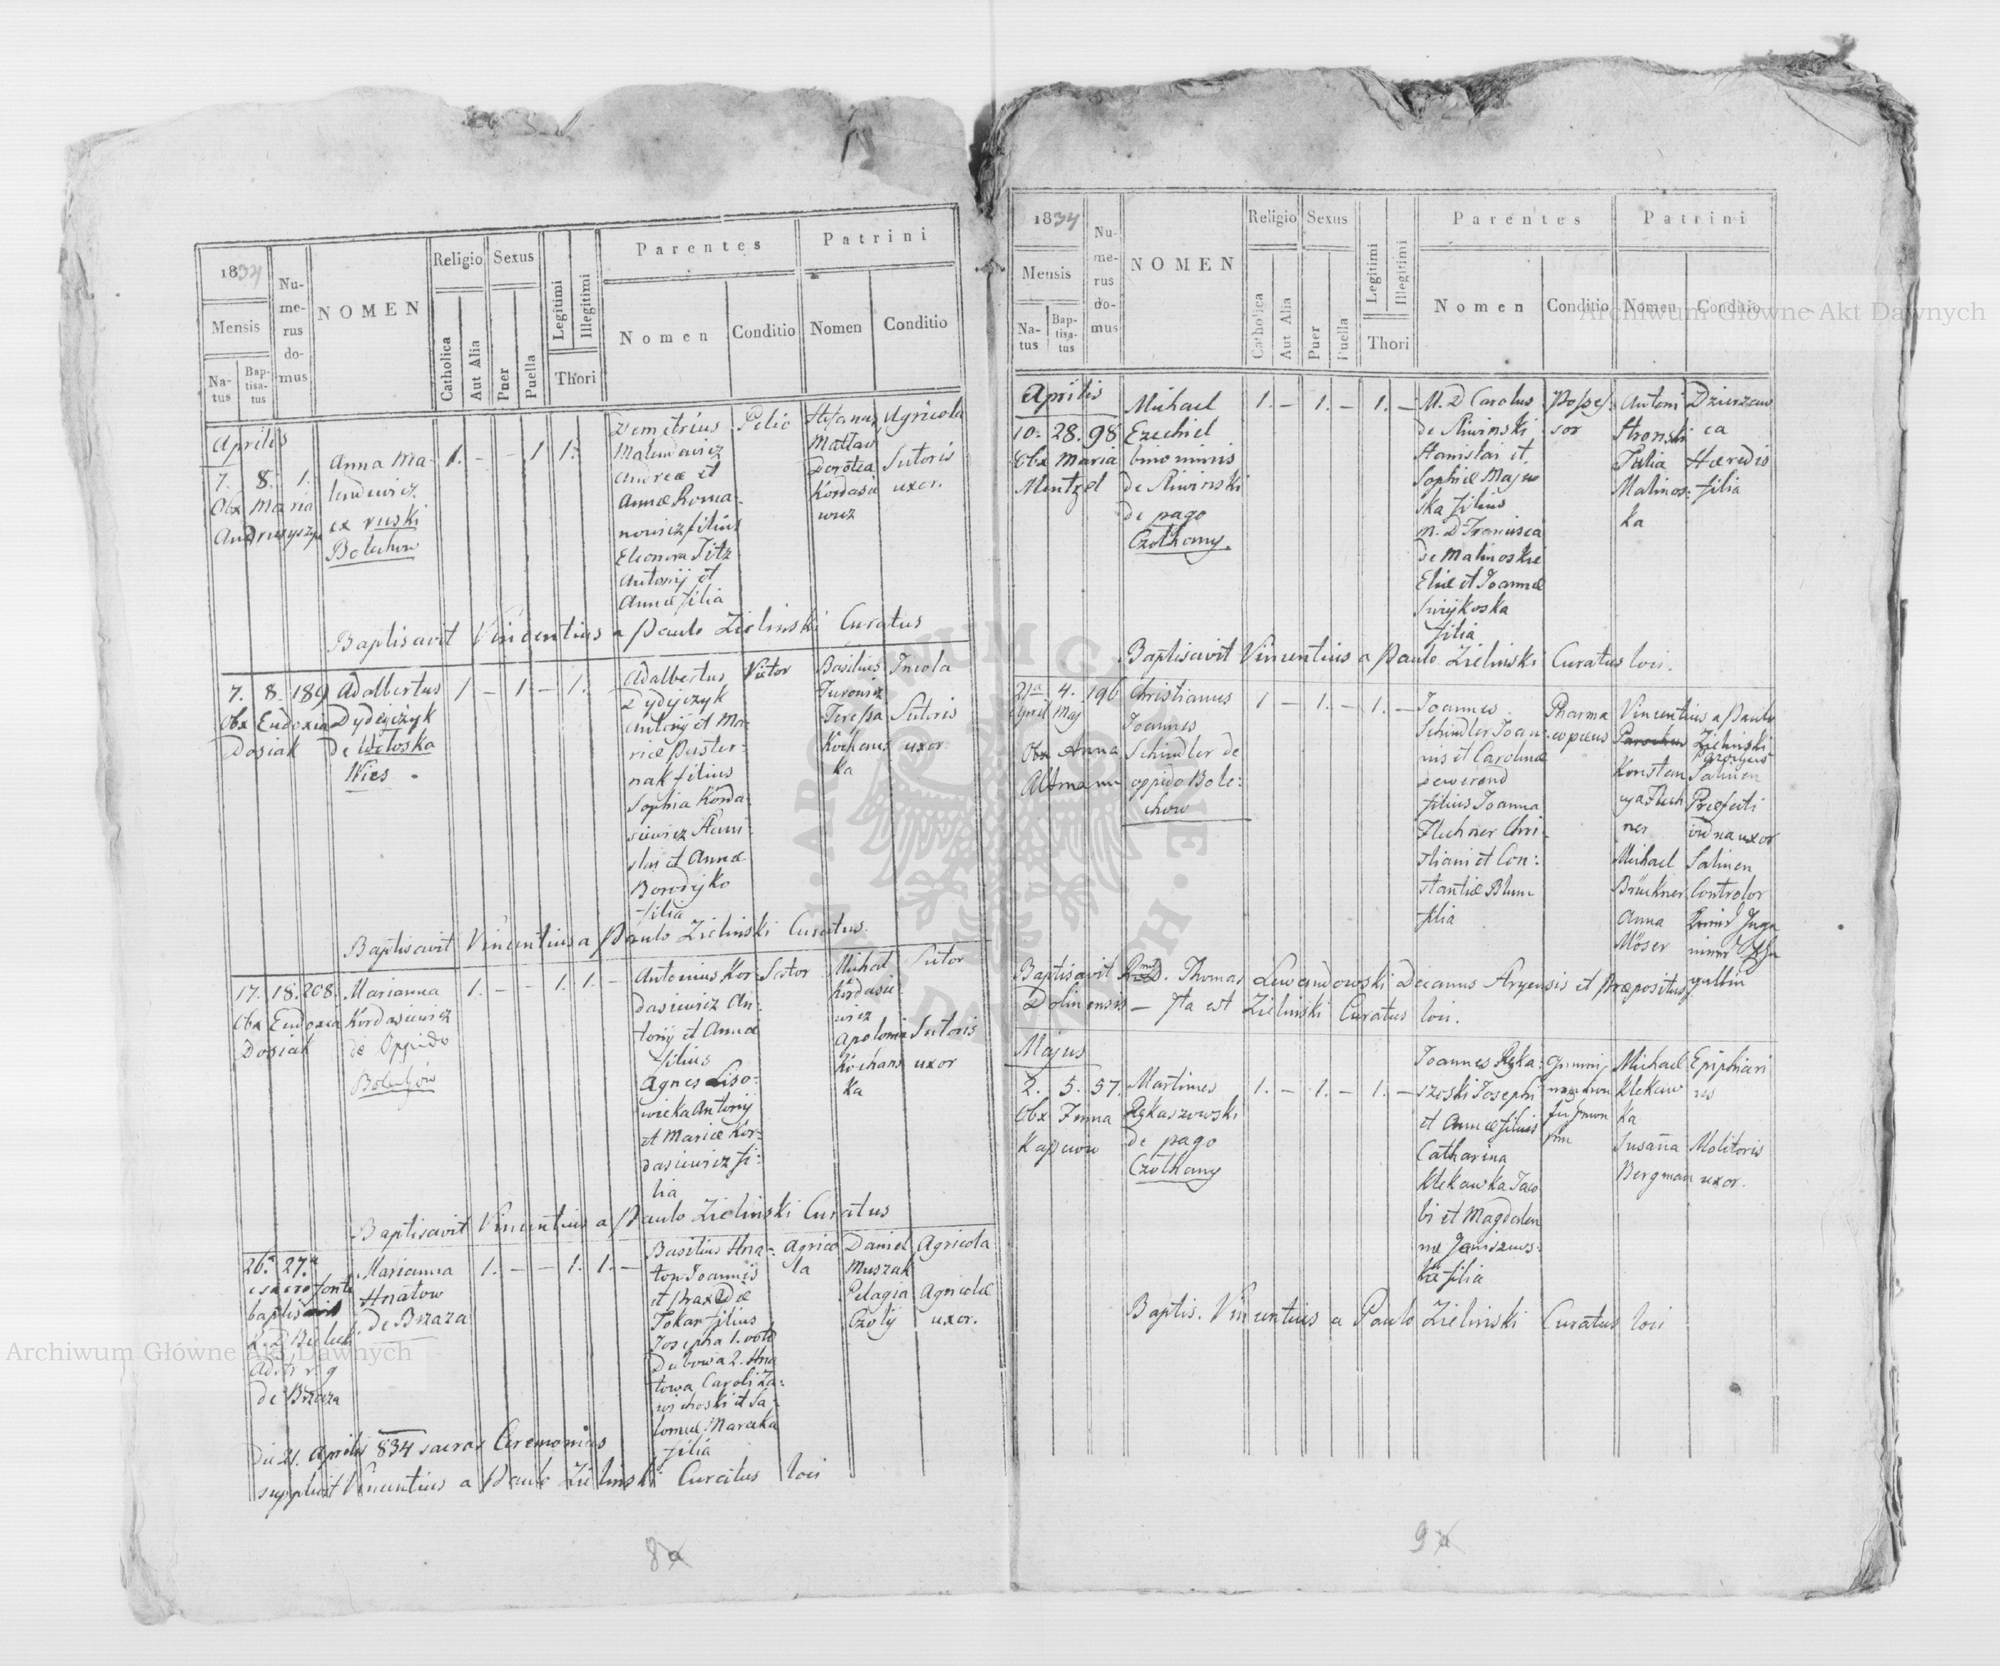 1834
Mensis
Na-
tus
Bap-
tisa-
tus
Nu-
me-
rus
do-
mus
NOMEN
Religio
Catholica
Aut Alia
Sexus
Puer
Puella
Legitimi
Illegitimi
Thori
Parentes
Nomen
Conditio
Patrini
Nomen
Conditio
Aprilis
7. 8. 1.
Obx Maria
Anna Ma-
ex ruski
Bolechow
1. - - 1 1.
Demetrius
Andreæ et
Annæ Roma-
nowicz filius
Eleonora Titz
Antonij et
Annæ filia
Stefanus
Dorotea
Kordasie
wicz
Agricola
Sutoris
uxor.
Baptisavit Vincentius a Paulo Zielinski Curatus
7. 8. 189
Obx Eudoxia
Dosiak
Adalbertus
Dydyczyk
de Wołoska
Wies.
1 - 1 - 1.
Adalbertus
Dydyczyk
Antonij et Ma-
riæ Paster-
nak filius
Sophia Korda-
siewicz Stani-
slai et Annæ
Borodyko
filia
Basilius
Teressa
Kochans
ka
Incola
Sutoris
uxor
Baptisavit Vincentius a Paulo Zielinski Curatus.
17. 18. 208.
Obx Eudoxia
Dosiak
Marianna
Kordasiewicz
de Oppido
1. - - 1. 1. -
Antonius Kor
dasiewicz An-
tonij et Annæ
filius
Agnes Liso-
wicka Antonij
et Mariæ Kor-
dasiewicz fi-
lia
Sutor
Michael
Kordasie
wicz
Apolonia
Kochans
ka
Sutor
Sutoris
uxor
Baptisavit Vincentius a Paulo Zielinski Curatus
26.a 27.a
de Brzaza
Marianna
Hnatow
de Brzaza
1. - - 1. 1. -
Basilius Hna-
tow Joannis
et Praxedæ
Tokar filius
Josepha 1. voto
Dubowa 2. Hna
towa Caroli Za-
wichoski et Sa-
lomeæ Marecka
filia
Agrico
la
Daniel
Muszak
Pelagia
Czolij
Agricola
Agricolæ
uxor.
Die 21. Aprilis 834 sacras Ceremonias
supplevit Vincentius a Paulo Zielinski Curatus loci
8
1834
Mensis
Na-
tus
Bap-
tisa-
tus
Nu-
me-
rus
do-
mus
NOMEN
Religio
Catholica
Aut Alia
Sexus
Puer
Puella
Legitimi
Illegitimi
Thori
Parentes
Nomen
Conditio
Patrini
Nomen
Conditio
Aprilis
10. 28. 98
Obx Maria
Mentzel
Michael
Ezechiel
binominis
de Siwinski
de pago
Czołhany.
1. - 1. - 1. -
M. D Carolus
de Siwinski
Stanislai et
Sophiæ Majew
ska filius
M. D Francisca
de Malinoskie
Eliæ et Joannæ
filia
Posses-
sor
Antoni
Julia
Malinos-
ka
Dzierzaw
ca
Hæredis
filia
Baptisavit Vincentius a Paulo Zielinski Curatus loci.
21a 4. 196
April Maj
Obx Anna
Altmann
Christianus
Joannes
Schindler de
oppido Bole-
chow
1 - 1. - 1. -
Joannes
Schindler Joan-
nis et Carolinæ
filius Joanna
Fluhner Chri-
stiani et Con-
stantiæ Blum
filia
Pharma
copæus
Vincentius a Paulo
Zielinski
Parochus
Konstan
cya Fluh
ner
Michael
Brückner
Anna
Möser
Salinen
Præfecti
vidua uxor
Salinen
Controlor
Baptisavit Rmus D. Thomas Lewandowski Decanus Stryensis et Præpositus
Dolinensis - Ita est Zielinski Curatus loci.
Majus
2. 5. 57.
Martinus
Rękaszowski
de pago
Czołhany
1. - 1. - 1. -
Joannes Ręka-
szoski Josephi
et Annæ filius
Catharina
Klekawka Jaco
bi et Magdalen
næ Janiszews-
ka filia
Michael
Klekaw
ka
Susanna
Bergman
Molitoris
uxor.
Baptis. Vincentius a Paulo Zielinski Curatus loci
9
Archiwum Główne Akt Dawnych
Archiwum Główne Akt Dawnych